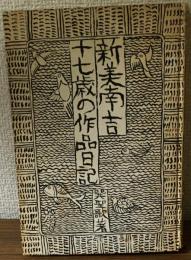 新美南吉
十七歳の作品日記